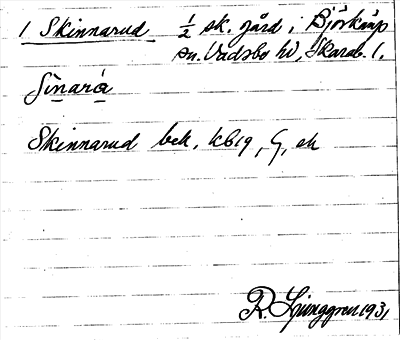 1 Skinnarud ½ sk. gård i Björkäng
sn. Vadsbo hd, Skarab. l.
Skinnarud bek. kb19, G, ek
R. Ljunggren 1931